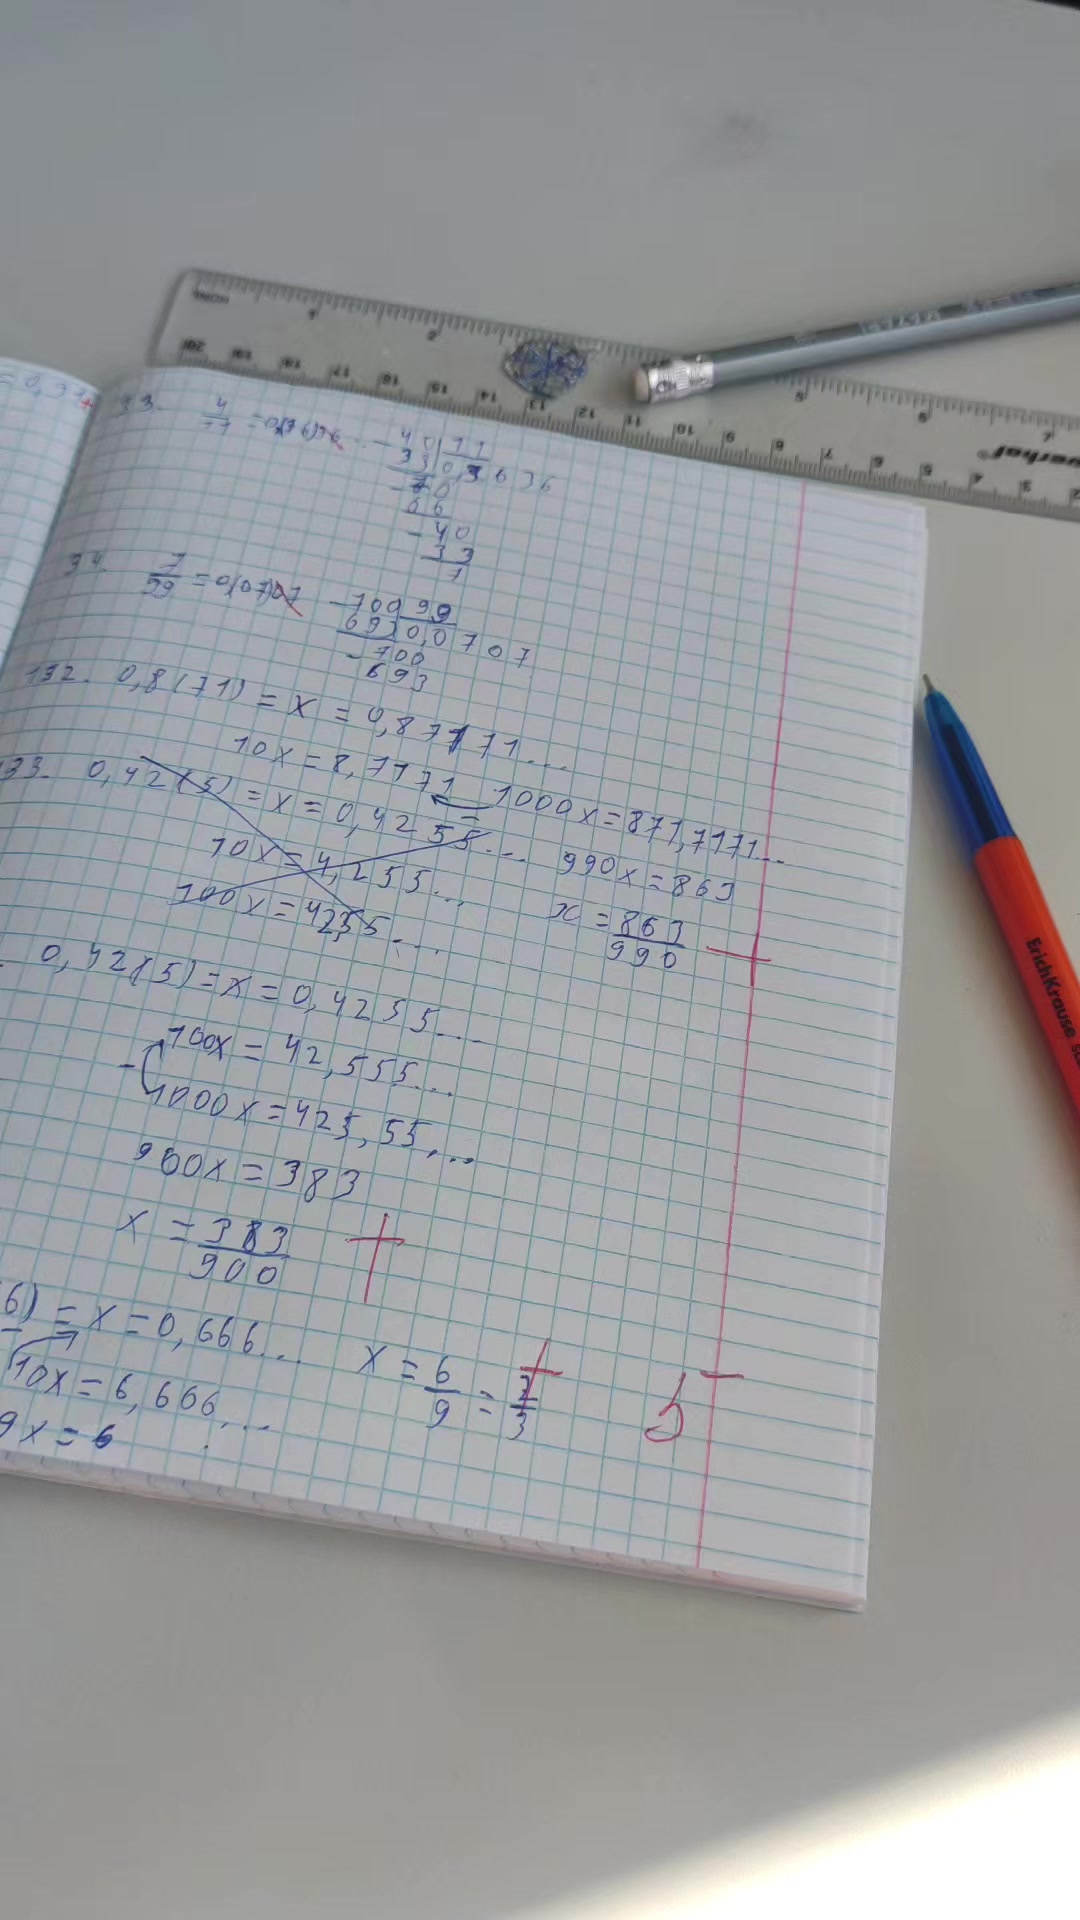 33. 4/11 = 0,(36)36... 40 | 11
33 0,3636
70
66
40
33
7
34. 7/99 = 0,(07)07 700 | 99
693 0,0707
700
693
132. 0,8(71) = x = 0,87171...
10x = 8,7171 1000x = 871,7171...
990x = 863
x = 863/990 +
133. 0,42(5) = x = 0,4255...
10x = 4,255...
100x = 4255...
0,42(5) = x = 0,4255...
100x = 42,555...
1000x = 425,55,...
900x = 383
x = 383/900 +
6) = x = 0,666...
10x = 6,666...
9x = 6
x = 6/9 = 2/3 +
5-
ErichKrause